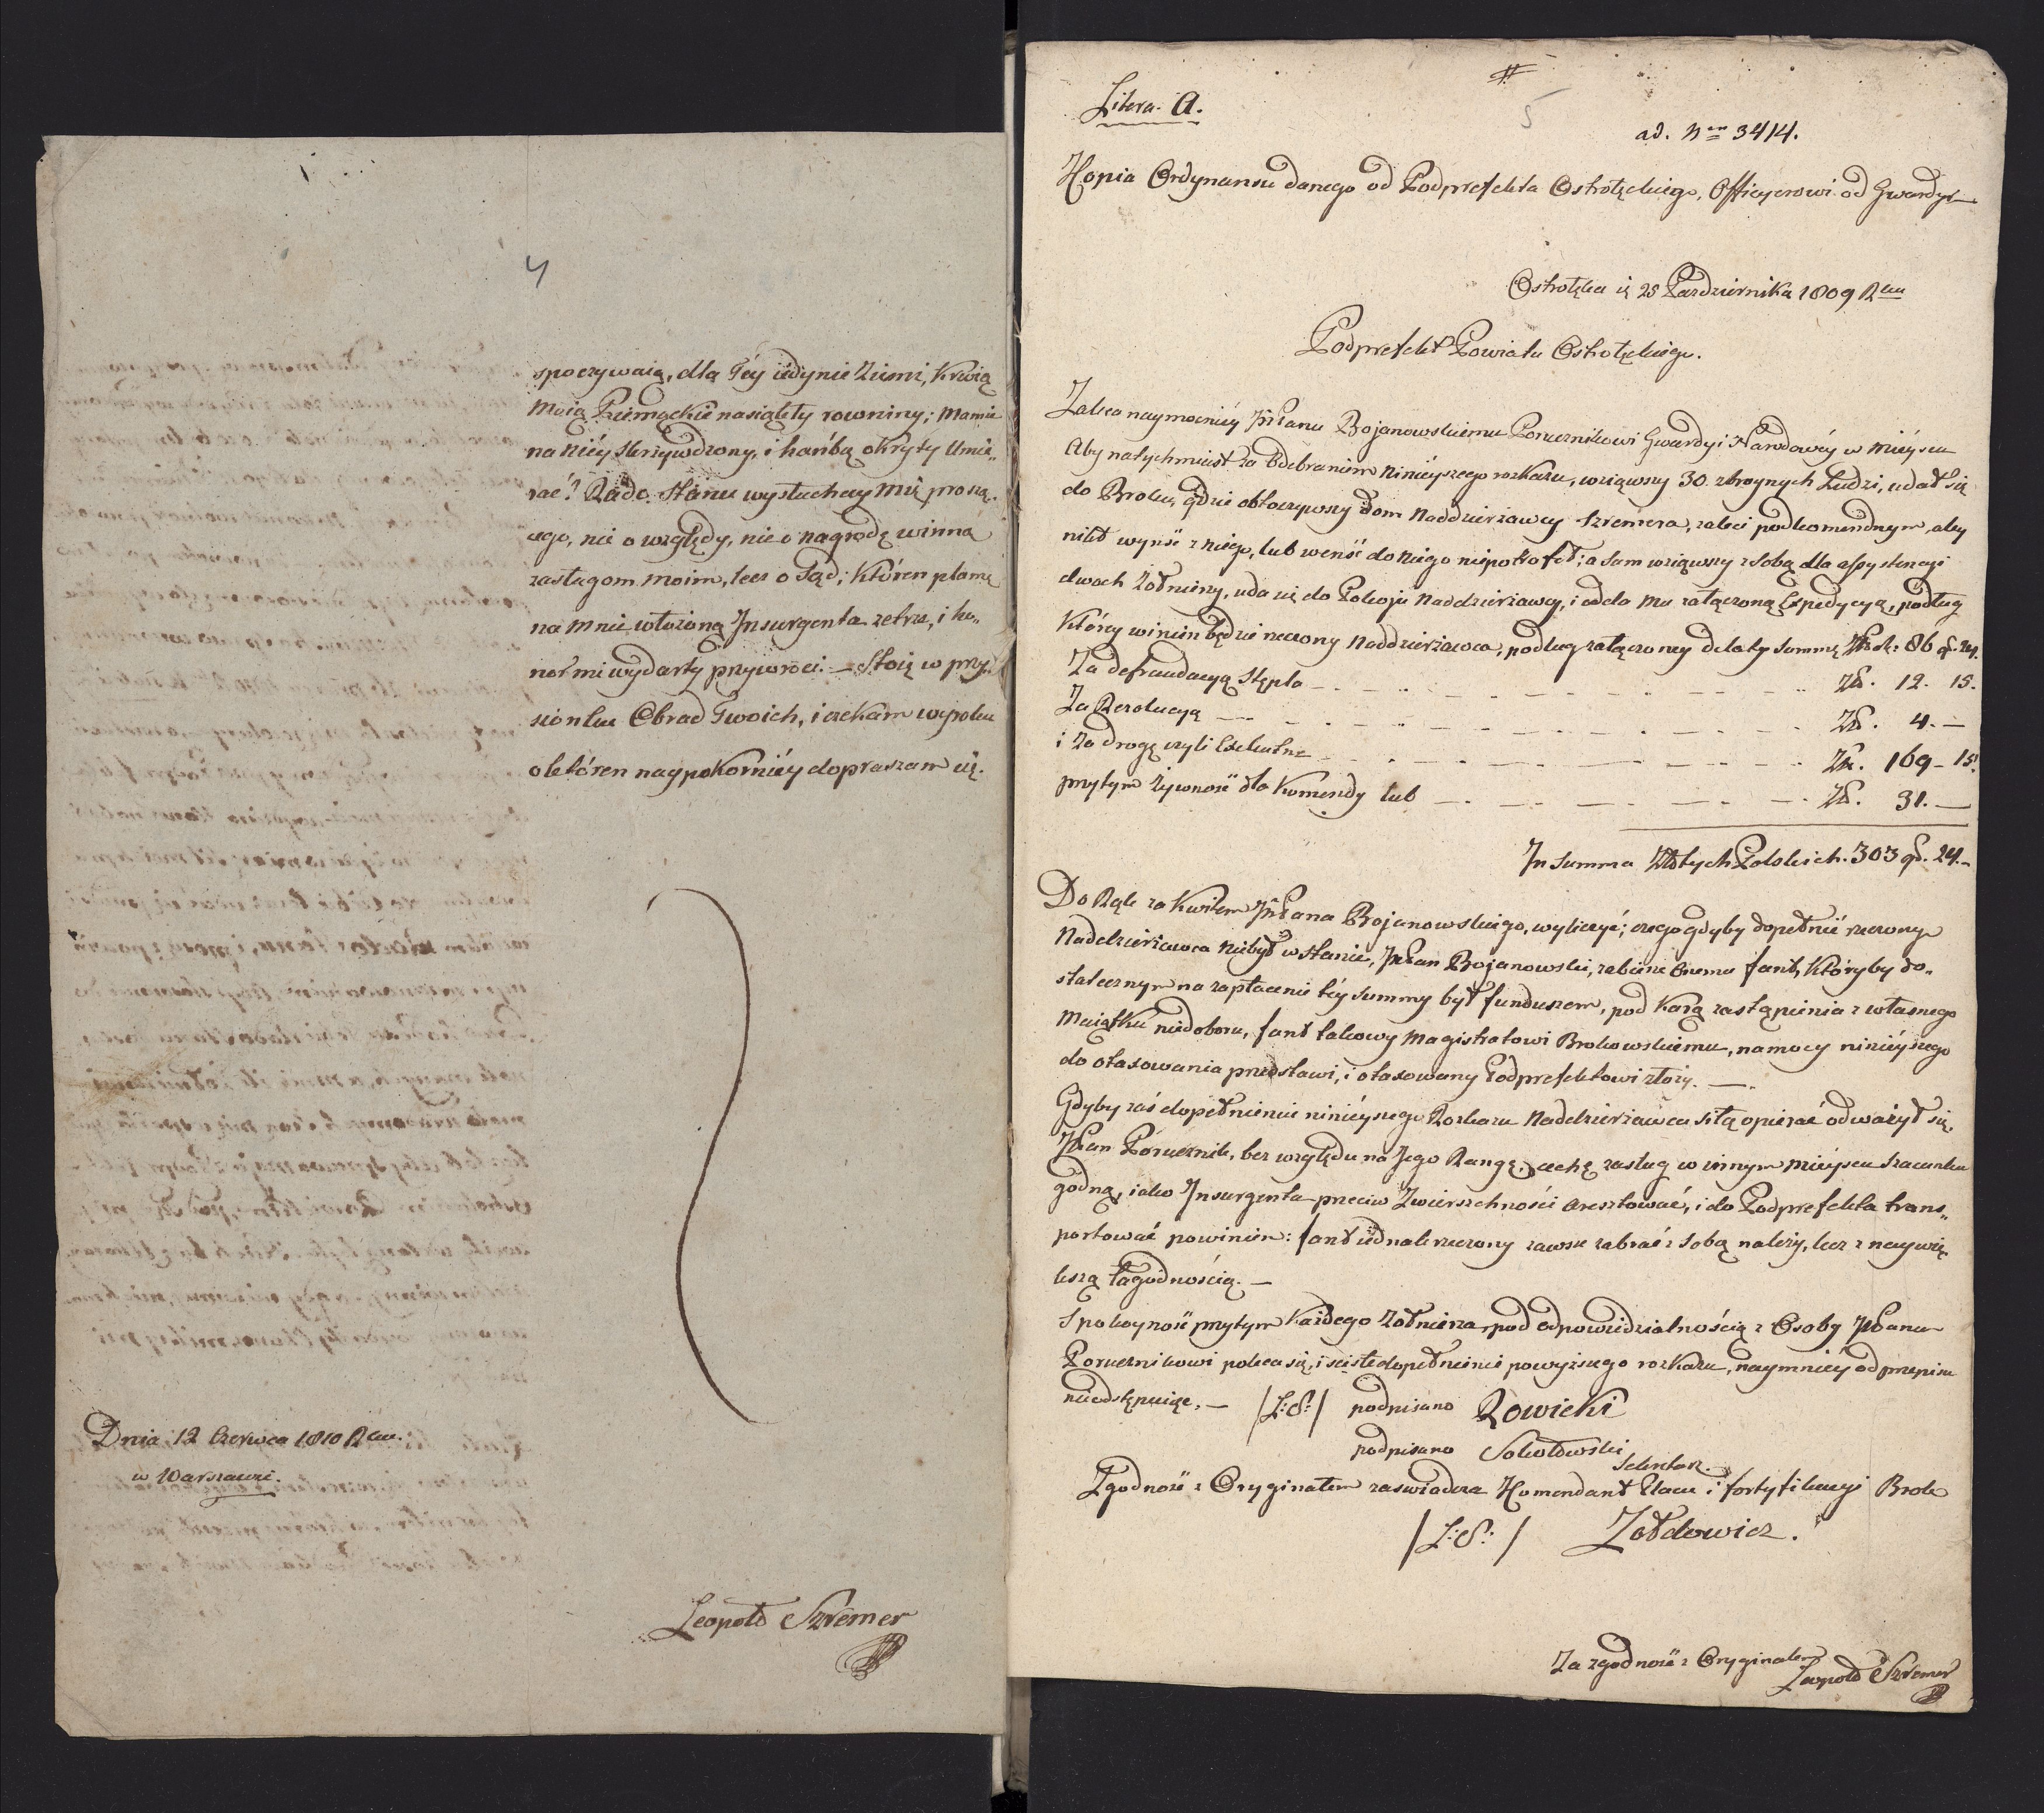 4
spoczywaią, dla Téy iedynie Ziemi, Krwią
Moią Piemąckie nasiąkły rowniny; mamie
na niéy skrzywdzony, i hańbą okryty Umie„
rać? Rado Stanu wysłuchay mię proszą„
cego, nie o względy, nie o nagrodę winną
zasługom moim, lecz o Sąd; któren plamę
na mnie włożoną Insurgenta zetrze, i ho„
nor mi wydarty przywroci. — Stoię w przy„
sionku Obrad Twoich, i czekam wyroku
o któren naypokorniéy dopraszam się.
Dnia 12 Czerwca 1810 Rku.
w Warszawie.
Leopold Szremer
Litera. A.
5
ad. Nrm 3414.
Kopia Ordynansu danego od Podprefekta Ostrołęckiego, Officyerowi od Gwardyi
Ostrołęka d. 25 Pazdziernika 1809 Rku
Podprefekt Powiatu Ostrołęckiego.
Zaleca naymocniéy JPanu Bojanowskiemu Porucznikowi Gwardyi Narodowéy w mieyscu
Aby natychmiast za Odebraniem ninieyszego rozkazu, wziąwszy 30. zbroynych Ludzi, udał się
do Broku, gdzie obtoczywszy dom Naddzierzawcy Szremera, zaleci podkomendnym, aby
nikt wyniść z niego, lub wenść do niego niepotrafił; a sam wziąwszy z sobą dla assystencyi
dwoch żołnierzy, uda się do Pokoju Naddzierzawcy, i odda mu załączoną Expedycyą, podług
któréy winien będzie rzeczony Naddzierzawca, podług załączoney delaty summę Złt pk: 86 gr. 24.
Za defraudacyą stępla — . — Zł. 12. 15.
Za Rezolucyą — Zł. 4. —
i Za drogę czyli Exekutne — Zł. 169 – 15.
przytym żywność dla Komendy lub — Zł. 31. —
In Summa Złotych Polskich. 303 gr. 24. –
Do Rąk za Kwitem JPana Bojanowskiego, wyliczyć; czego gdyby dopełnić rzeczony
Naddzierzawca niebył w stanie, JPan Bojanowski, zabierze Onemu fant, któryby do„
statecznym na zapłacenie téy summy był funduszem, pod karą zastąpienia z własnego
Maiątku niedoboru, fant takowy Magistratowi Brokowskiemu, na mocy ninieyszego
do otaxowania przedstawi, i otaxowany Podprefektowi złoży. —
Gdyby zaś dopełnienie ninieyszego Rozkazu Naddzierzawca siłą opierać odważył się,
JPan Porucznik, bez względu na Jego Rangę, i cechę zasług w innym mieyscu szacunku
godną, iako Insurgenta przeciw Zwierzchności aresztować, i do Podprefekta trans„
portować powinien: fant iednak rzeczony zawsze zabrać z sobą należy, lecz z naywię„
kszą łagodnością. —
Spokoyność przytym każdego Zołnierza pod odpowiedzialnością z Osoby JPanu
Porucznikowi poleca się, i scisłe dopełnienie powyższego rozkazu, naymniéy od przepisu
nieodstępuiąc. — /L:S:/ podpisano Rowicki
podpisano Sokołowski
Sekretarz.
Zgodność z Oryginałem zaswiadcza Komendant Placu i fortyfikacyi Brok
/L:S:/ Zołdowicz.
Za zgodność z Oryginałem
Leopold Szremer